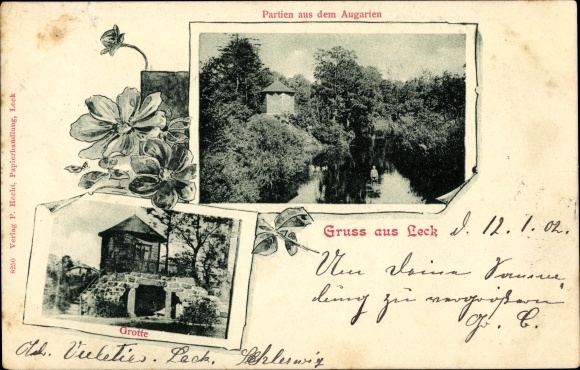 Partien aus dem Augarten
8250 Verlag P. Hecht, Papierhandlung, Leck
Gruss aus Leck d. 12.1.02.
Um Deine Samm-
lung zu vergrößern
Grotte
Leck. Schleswig